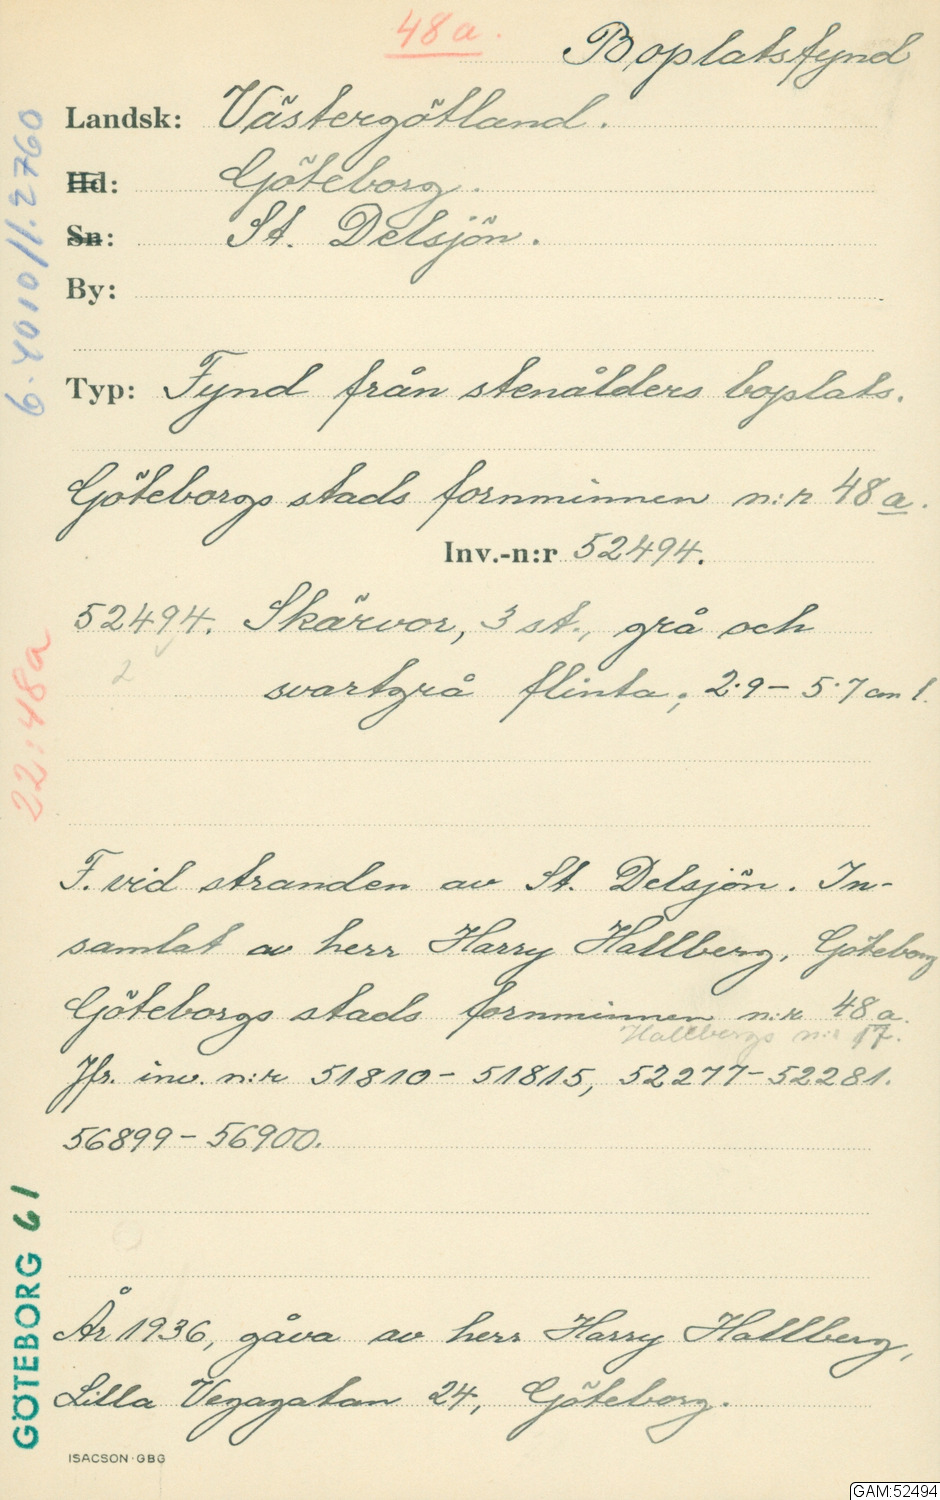 48 a.
Boplatsfynd
Landsk: Västergötland.
Hd: Göteborg.
Sn: St. Delsjön.
By:
Typ: Fynd från stenålders boplats.
Göteborgs stads fornminnen n:r 48 a.
Inv.-n:r 52494.
52494. Skärvor, 3 st., grå och
2
svartgrå flinta; 2.9 - 5.7 cm l.
F. vid stranden av St. Delsjön. In-
samlat av herr Harry Hallberg, Göteborg
Göteborgs stads fornminnen n:r 48 a.
Hallbergs n:r 17.
Jfr. inv. n:r 51810 - 51815, 52277 - 52281.
56899 - 56900.
År 1936, gåva av herr Harry Hallberg,
Lilla Vegagatan 24, Göteborg.
ISACSON·GBG
6.4010/1.2760
22:48a
GÖTEBORG 61
GAM:52494